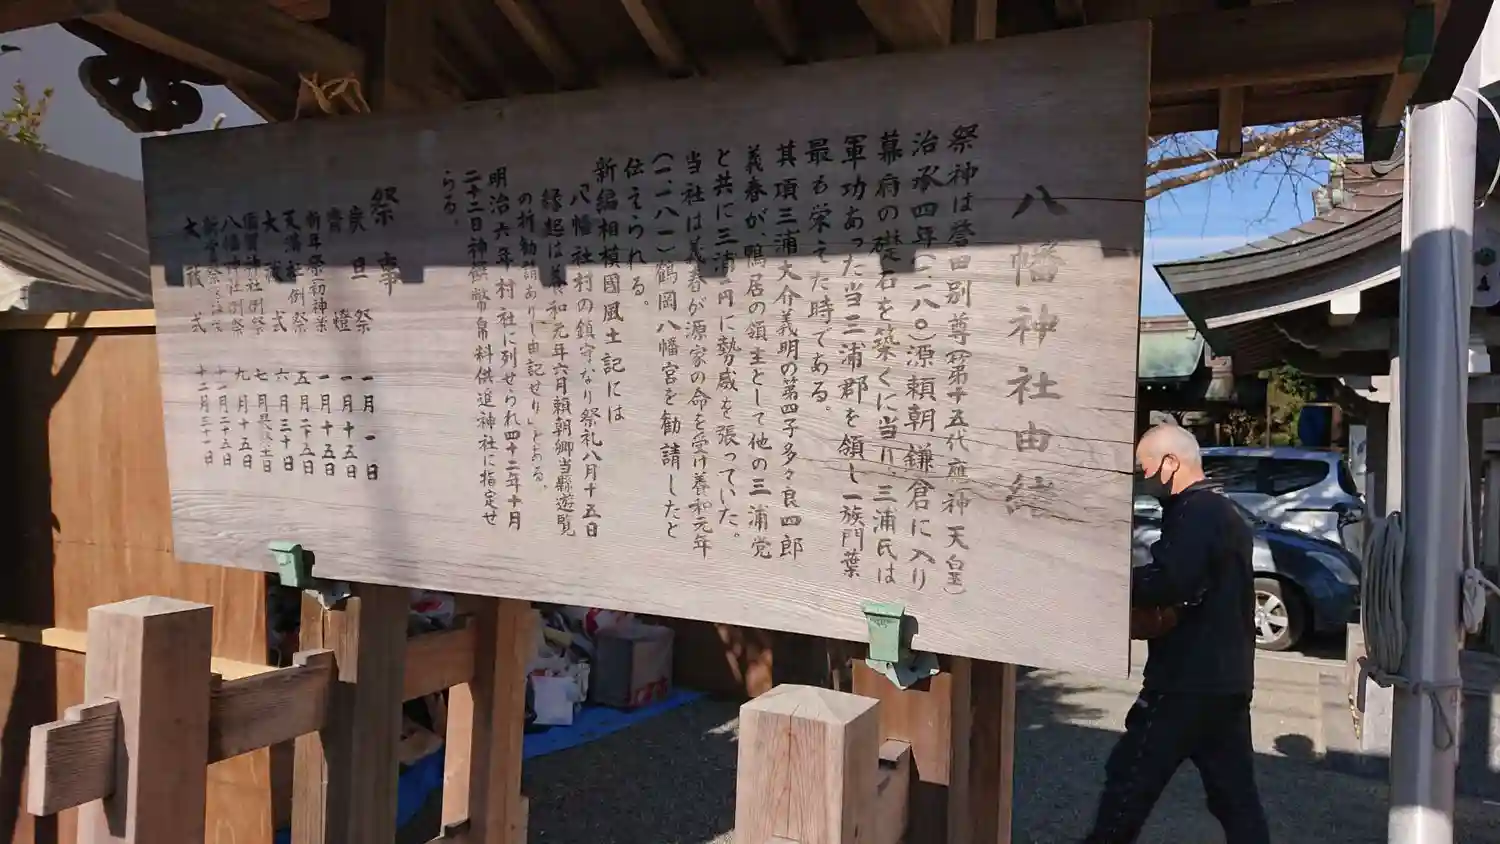 八幡神社由緒
祭神は誉田別尊(第十五代應神天皇)
治承四年(一一八〇)源頼朝鎌倉に入り
幕府の礎石を築くに当り、三浦氏は
軍功あった当三浦郡を領し一族門葉
最も栄えた時である。
其項三浦大介義明の第四子多々良四郎
義春が、鴨居の領主として他の三浦党
と共に三浦一円に勢威を張っていた。
当社は義春が源家の命を受け養和元年
(一一八一)鶴岡八幡宮を勧請したと
伝えられる。
新編相模國風土記には
「八幡社村の鎮守なり祭礼八月十五日
縁起は養和元年六月頼朝卿当縣遊覧
の祈勧請ありし由記せり」とある。
明治六年村社に列せられ四十二年十月
二十二日神饌幣帛料供進神社に指定せ
らる。
祭事
歳旦祭 一月一日
齋燈 一月十五日
新年祭初神楽 一月十五日
天満社例祭 五月二十五日
大祓式 六月三十日
須賀神社例祭 七月最終土日
八幡神社例祭 九月十五日
新嘗祭 十一月二十五日
大祓式 十二月三十一日